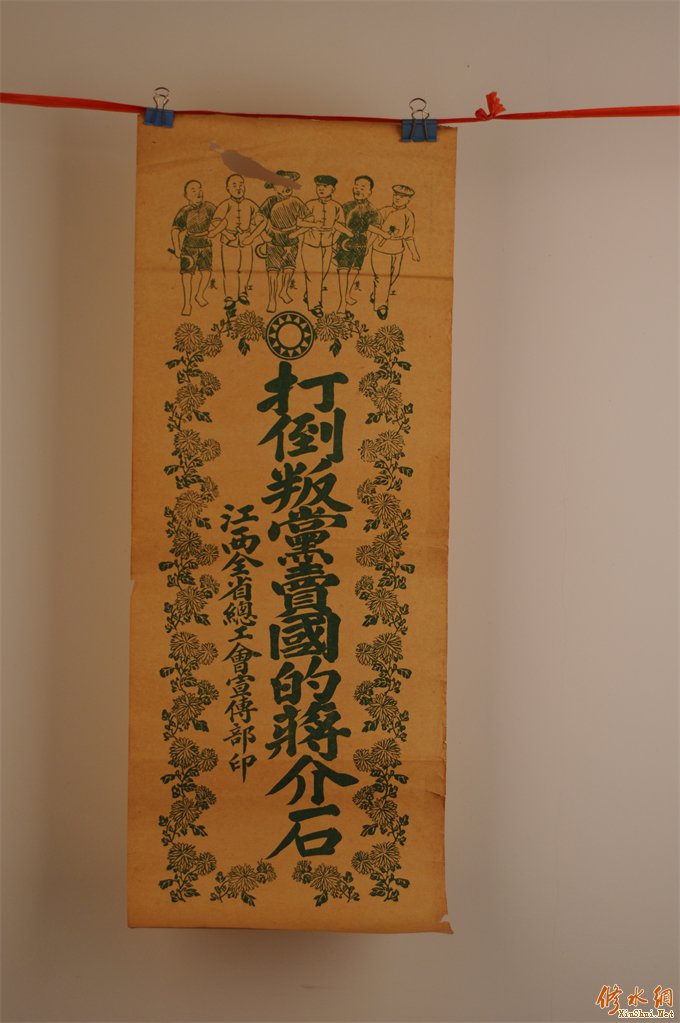 農 工 農 工
打倒叛黨賣國的蔣介石
江西全省總工會宣傳部印
修水網
XiuShui.Net